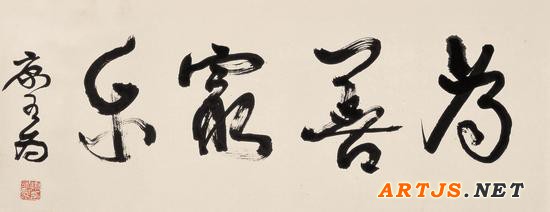 為善最樂
康有為
ARTJS.NET